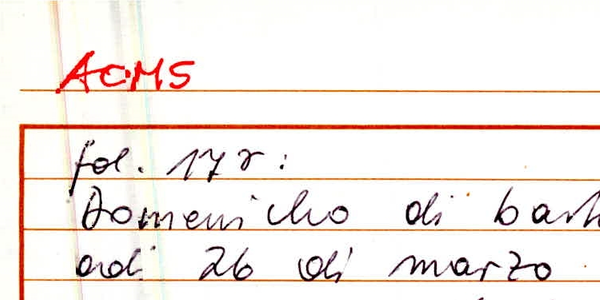 AOMS
fol. 17r:
Domenicho di
adi 26 di marzo